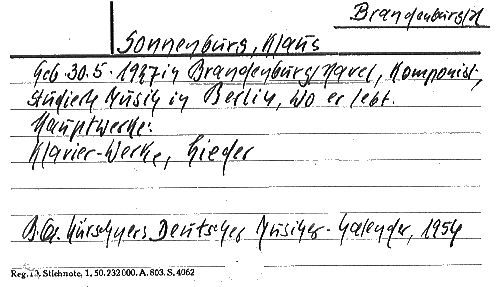 Brandenburg/H
Sonnenburg, Klaus
Geb. 30.5.1927 in Brandenburg/Havel, Komponist,
studierte Musik in Berlin, wo er lebt.
Hauptwerke:
Klavier-Werke, Lieder
Kürschners Deutscher Musiker-Kalender, 1954
Stichnote, 1. 50. 232000. A. 803. S. 4062